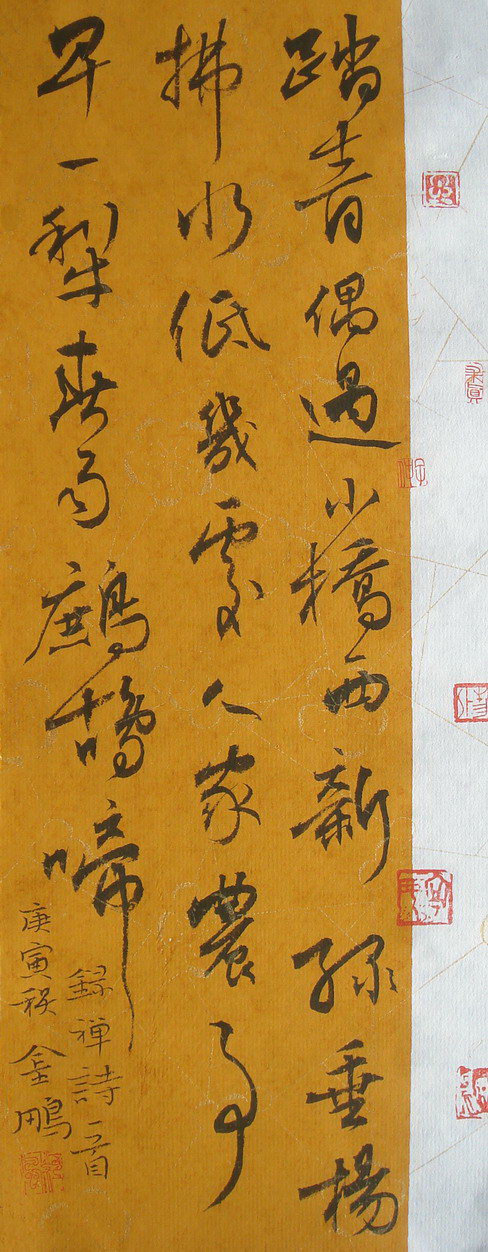 踏青偶過小橋西新綠垂楊
拂水低幾處人家農事
早一犁春雨鷓鴣啼
錄禪詩一首
庚寅秋金鵬